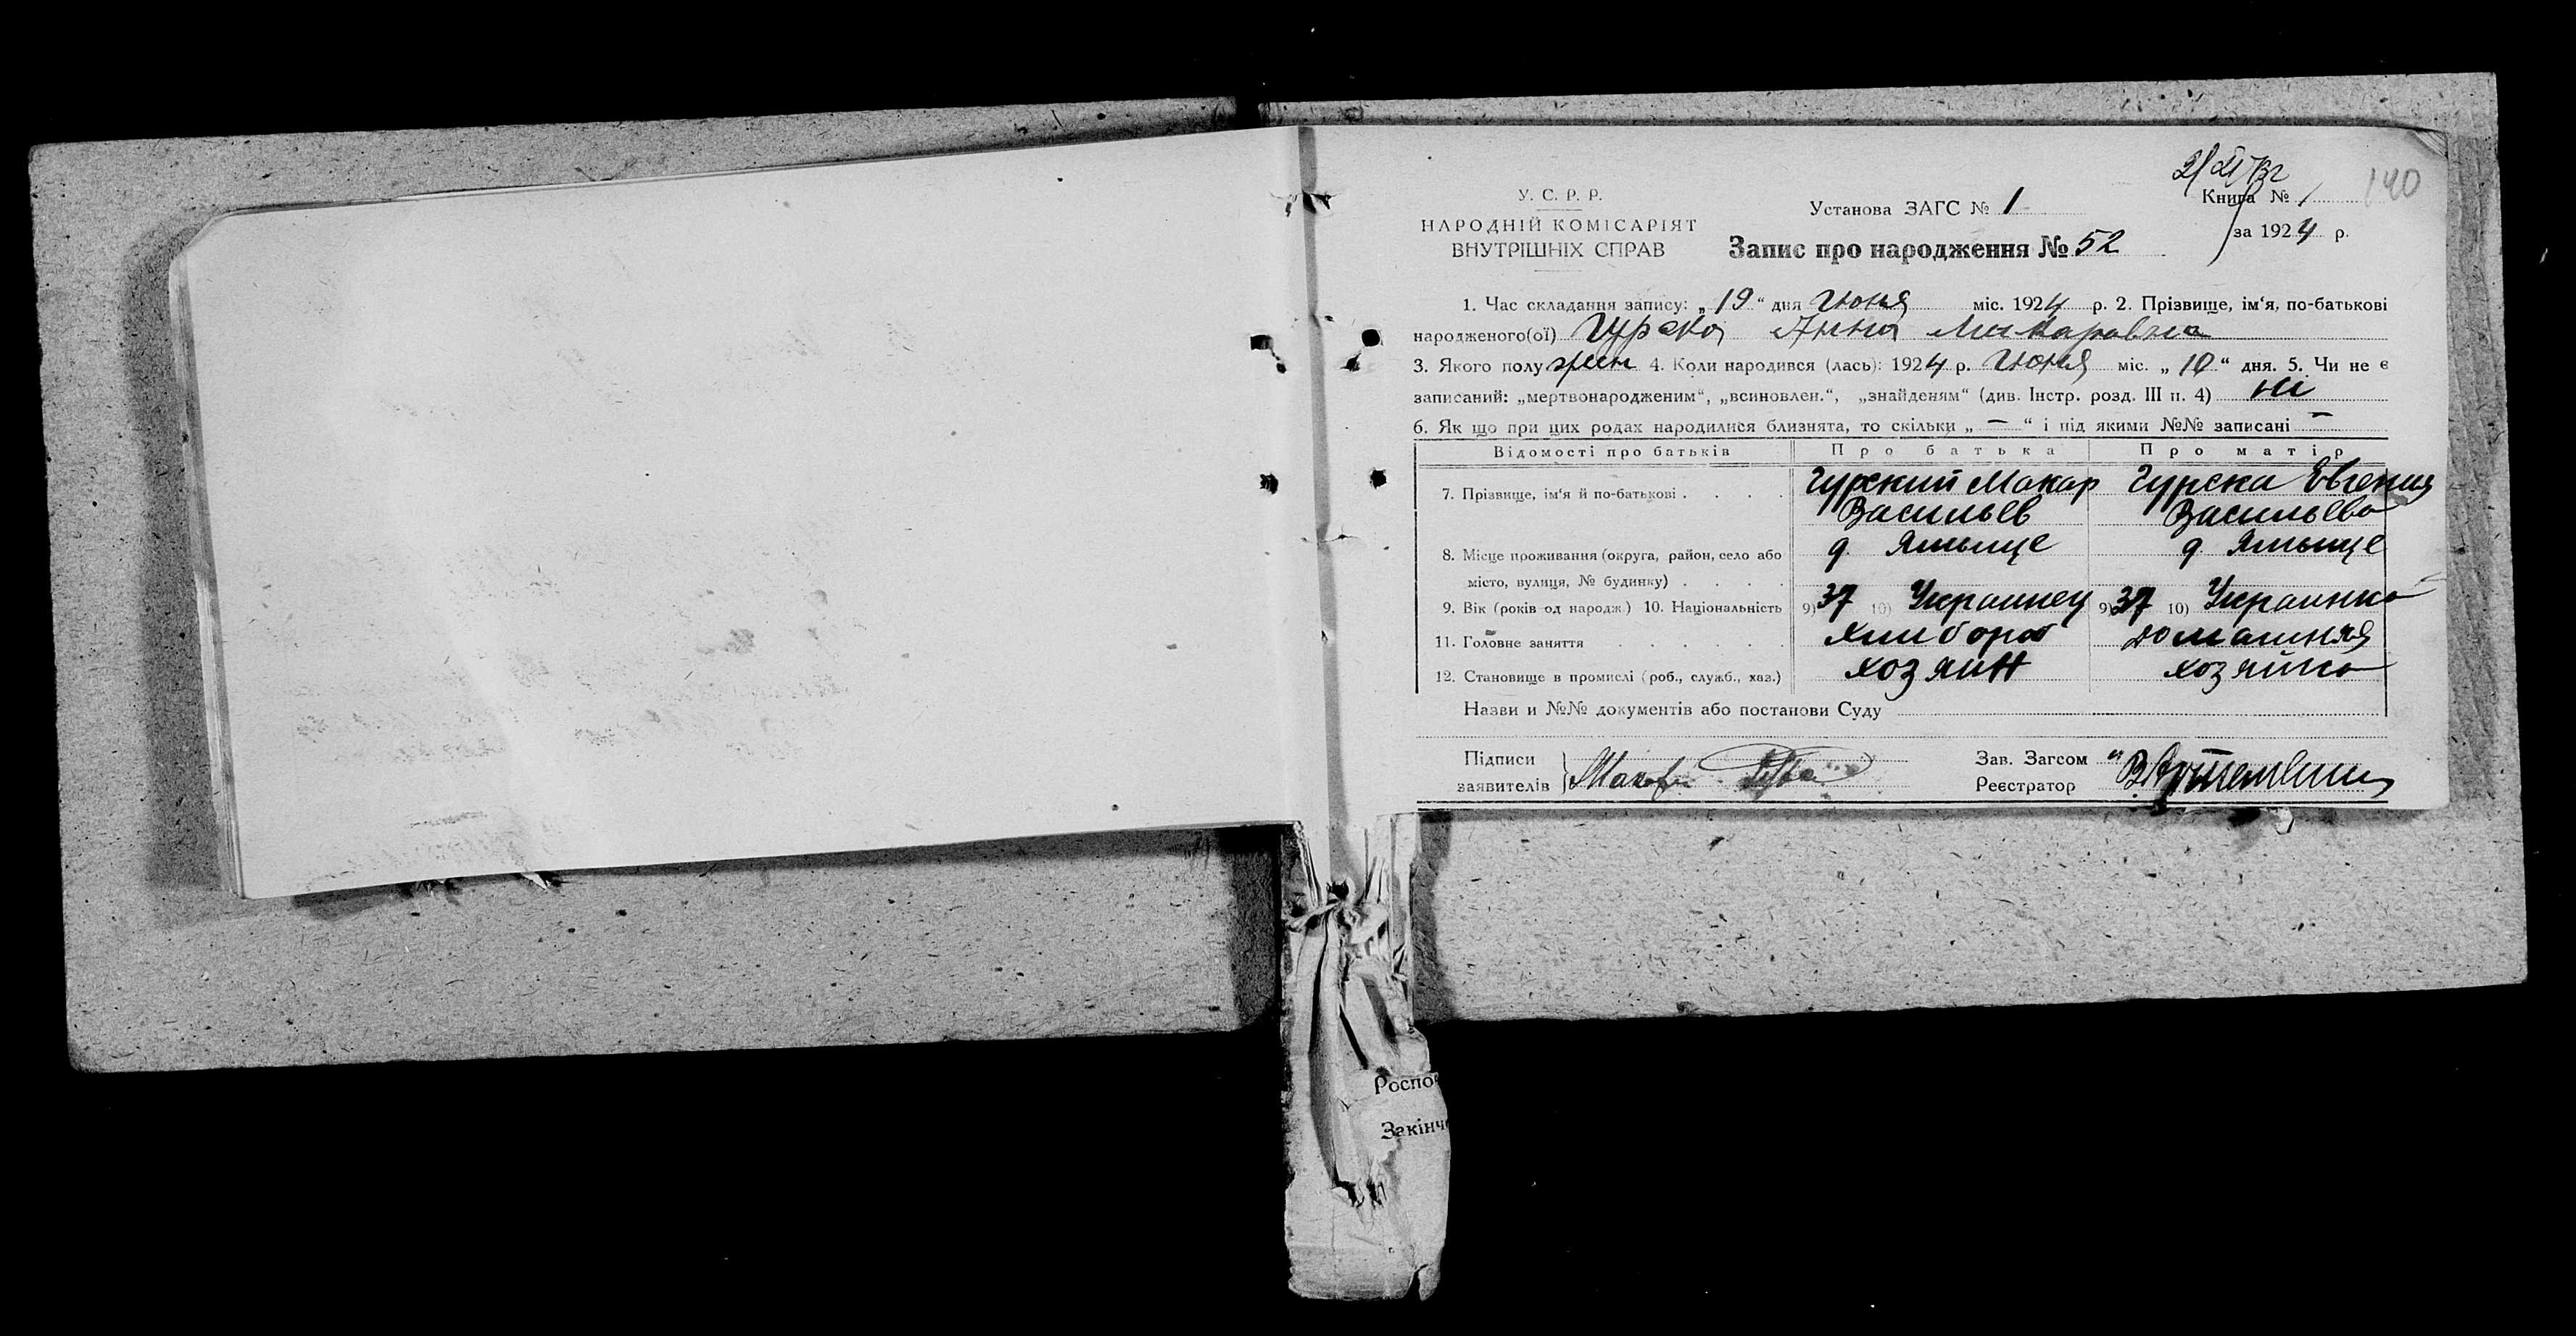 140
У. С. Р. Р.
НАРОДНІЙ КОМІСАРІЯТ
ВНУТРІШНІХ СПРАВ
Установа ЗАГС № 1
Книга № 1
за 1924 р.
Запис про народження № 52
1. Час складання запису: „19“ дня Июня міс. 1924 р. 2. Прізвище, ім‘я, по-батькові
народженого(ої) Гурска Анна Макаровна
3. Якого полу жен 4. Коли народився (лась): 1924 р. Июня міс. „10“ дня. 5. Чи не є
записаний: „мертвонародженим“, „всиновлен.“, „знайденям“ (див. Інстр. розд. III п. 4) ні
6. Як що при цих родах народилися близнята, то скільки „—“ і під якими №№ записані —
Відомості про батьків Про батька Про матір
7. Прізвище, ім‘я й по-батькові . . . . Гурский Макар Гурска Евгения
Васильев Васильева
8. Місце проживання (округа, район, село або д. Ямыще д. Ямыще
місто, вулиця, № будинку) . . . .
9. Вік (років од народж.) 10. Національність 9) 37 10) Украинец 9) 37 10) Украинка
11. Головне заняття . . . . . . хлибороб домашняя
12. Становище в промислі (роб., служб., хаз.) хозяин хозяйка
Назви и №№ документів або постанови Суду
Підписи
заявителів Макар
Зав. Загсом
Реєстратор
Роспо
Закінч